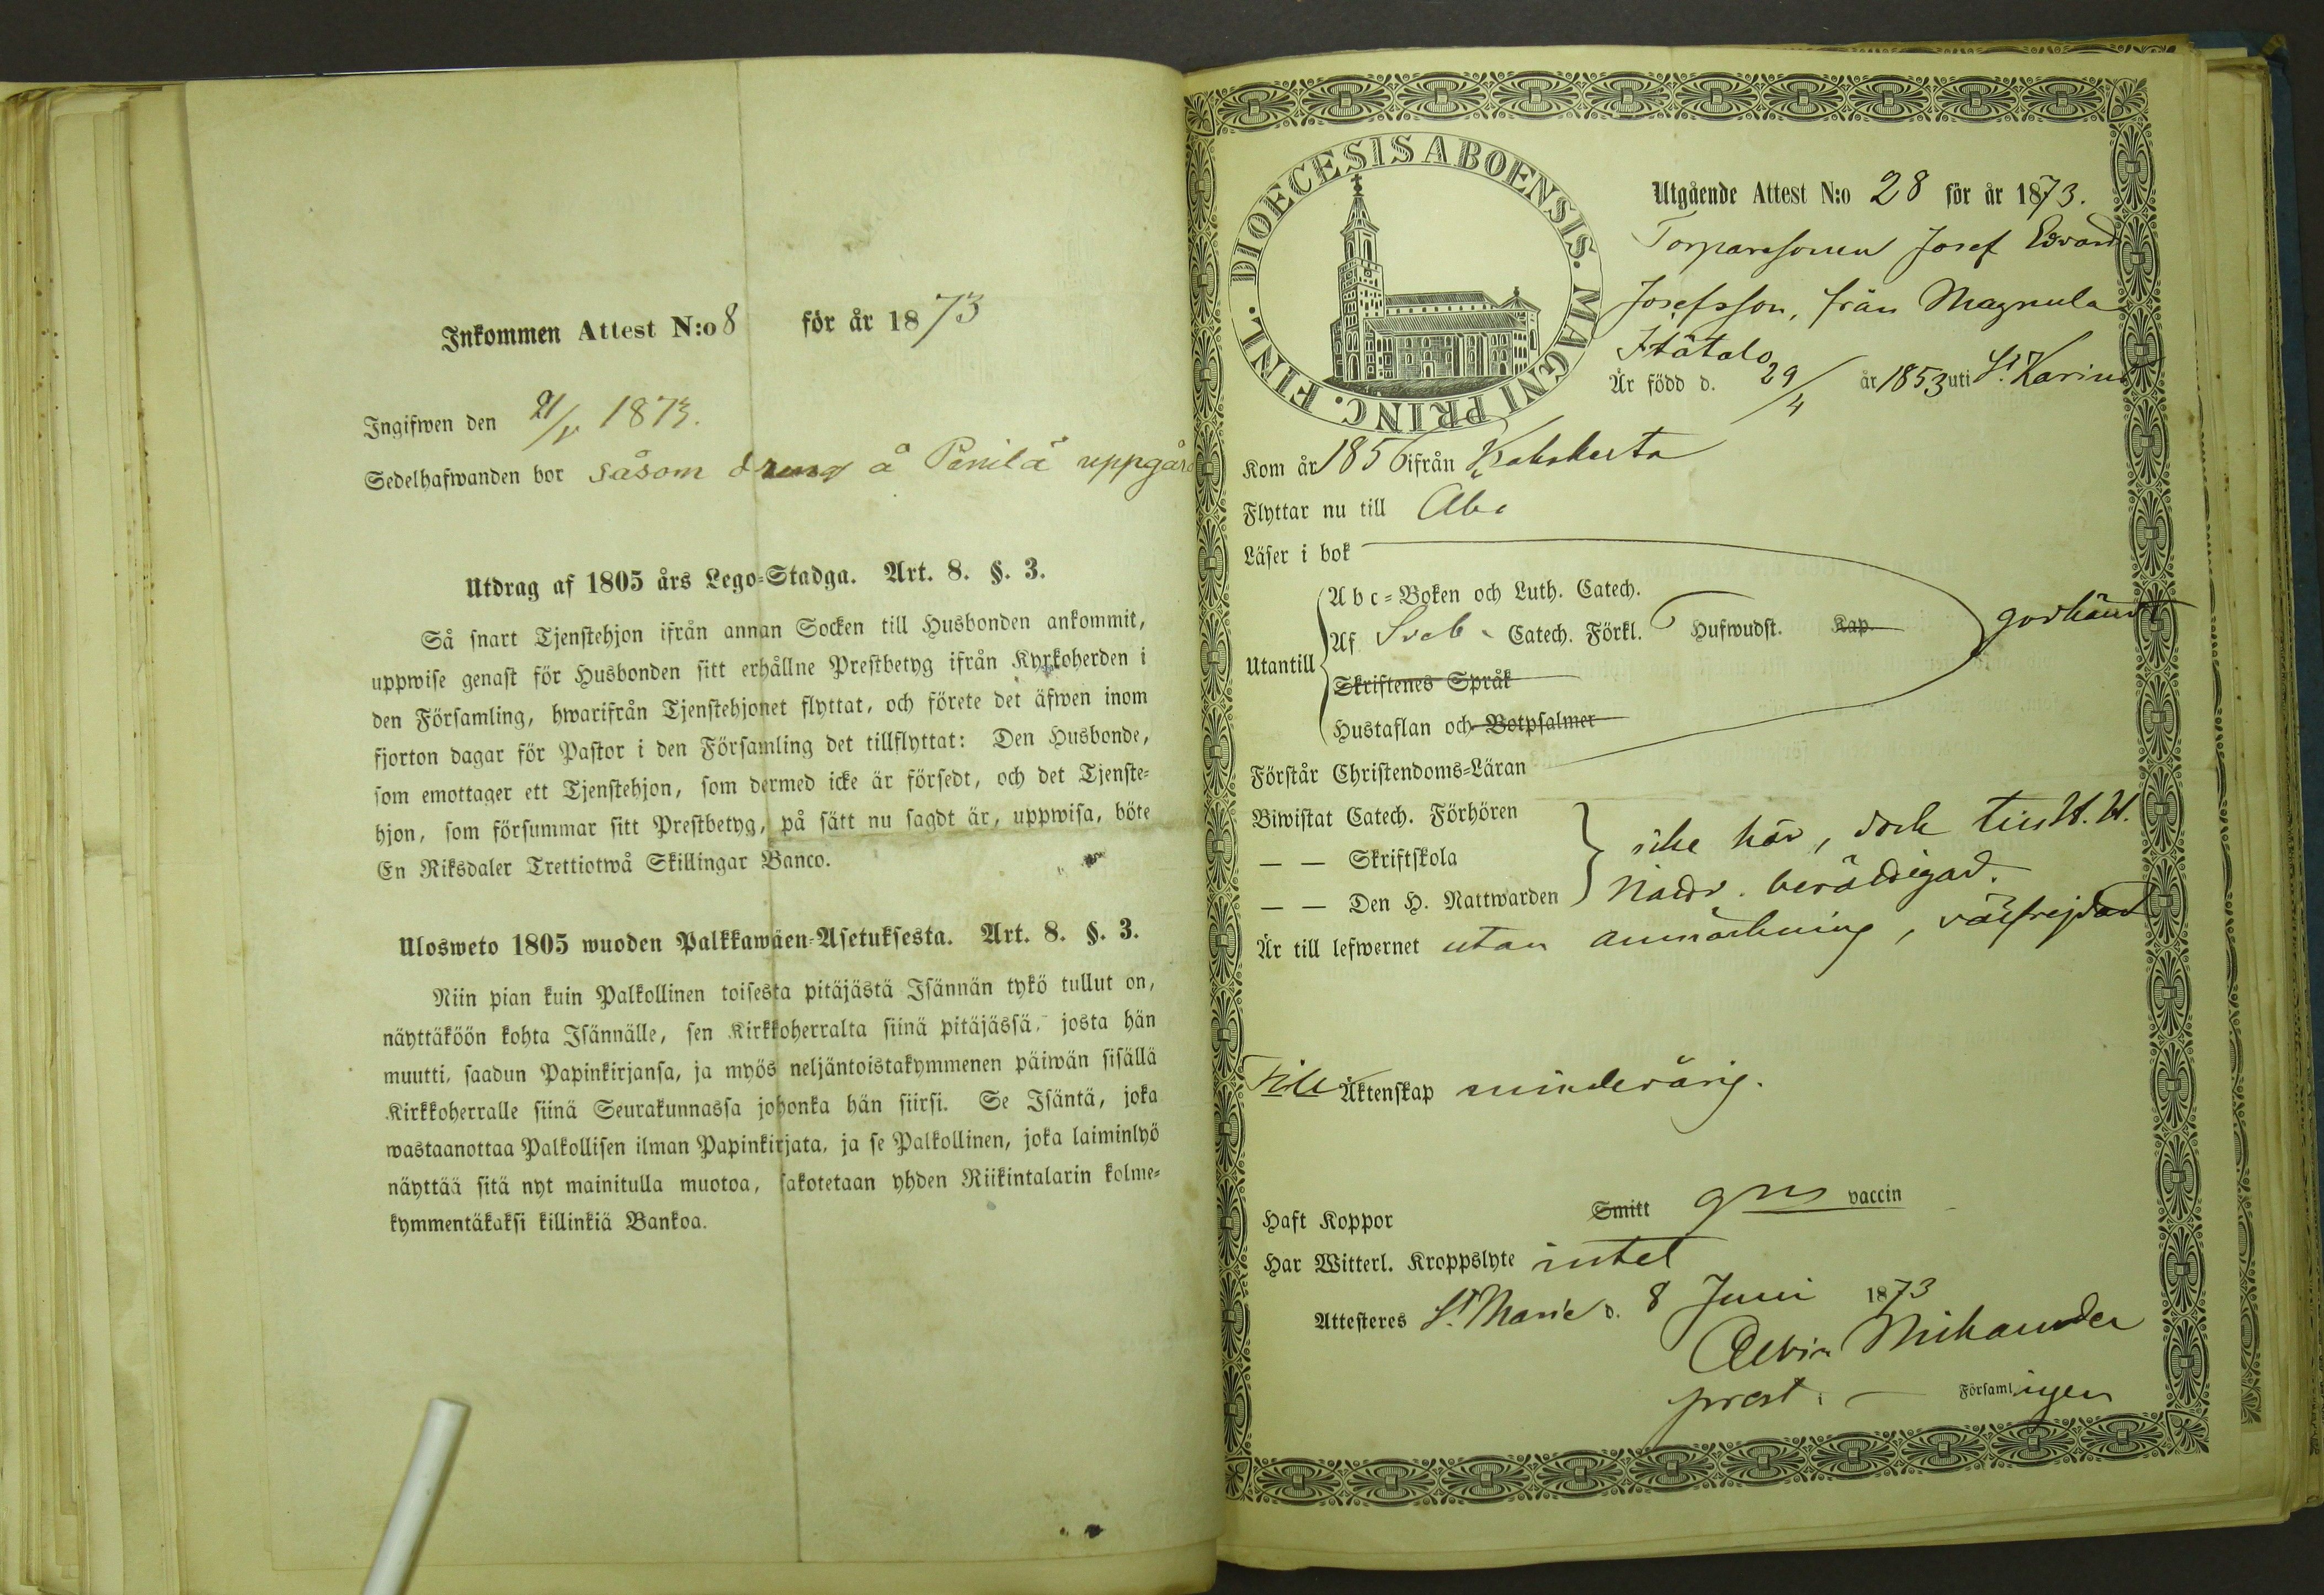 Inkommen Attest N:o 8 för år 1873
Ingifwen den 21/1 1873.
Sedelhafwanden bor såsom dreng å Penilä uppgård
Utdrag af 1805 års Lego-Stadga. Art. 8. §. 3.
Så snart Tjenstehjon ifrån annan Socken till Husbonden ankommit,
uppwise genast för Husbonden sitt erhållne Prestbetyg ifrån Kyrkoherden i
den Församling, hwarifrån Tjenstehjonet flyttat, och förete det äfwen inom
fjorton dagar för Pastor i den Församling det tillflyttat: Den Husbonde,
som emottager ett Tjenstehjon, som dermed icke är försedt, och det Tjenste-
hjon, som försummar sitt Prestbetyg, på sätt nu sagdt är, uppwisa, böte
En Riksdaler Trettiotwå Skillingar Banco.
Ulosweto 1805 wuoden Palkkawäen-Asetuksesta. Art. 8. §. 3.
Niin pian kuin Palkollinen toisesta pitäjästä Isännän tykö tullut on,
näyttäköön kohta Isännälle, sen Kirkkoherralta siinä pitäjässä, josta hän
muutti, saadun Papinkirjansa, ja myös neljäntoistakymmenen päiwän sisällä
Kirkkoherralle siinä Seurakunnassa johonka hän siirsi. Se Isäntä, joka
wastaanottaa Palkollisen ilman Papinkirjata, ja se Palkollinen, joka laiminlyö
näyttää sitä nyt mainitulla muotoa, sakotetaan yhden Riikintalarin kolme-
kymmentäkaksi killinkiä Bankoa.
DIOECESIS ABOENSIS. MAGNI PRINC. FINL.
Utgående Attest N:o 28 för år 1873.
Torparesonen Josef Edvard
Josefsson, från Magnula
Itätalo
Är född d. 29/4 år 1853 uti St Karins
Kom år 1856 ifrån Kakskerta
Flyttar nu till Åbo
Läser i bok
Abc-Boken och Luth. Catech.
Utantill Af Sveb. Catech. Förkl. Hufwudst. Kap. godkändt
Skriftenes Språk
Hustaflan och Botpsalmer
Förstår Christendoms-Läran
Biwistat Catech. Förhören
— — Skriftskola icke här, dock till H. H.
— — Den H. Nattwarden Nattv. berättigad.
Är till lefwernet utan anmärkning, välfrejdad
Till Äktenskap minderårig.
Haft Koppor Smitt gns vaccin
Har Witterl. Kroppslyte intet
Attesteres St Marie d. 8 Juni 1873
Mikander
prest i — Församlingen